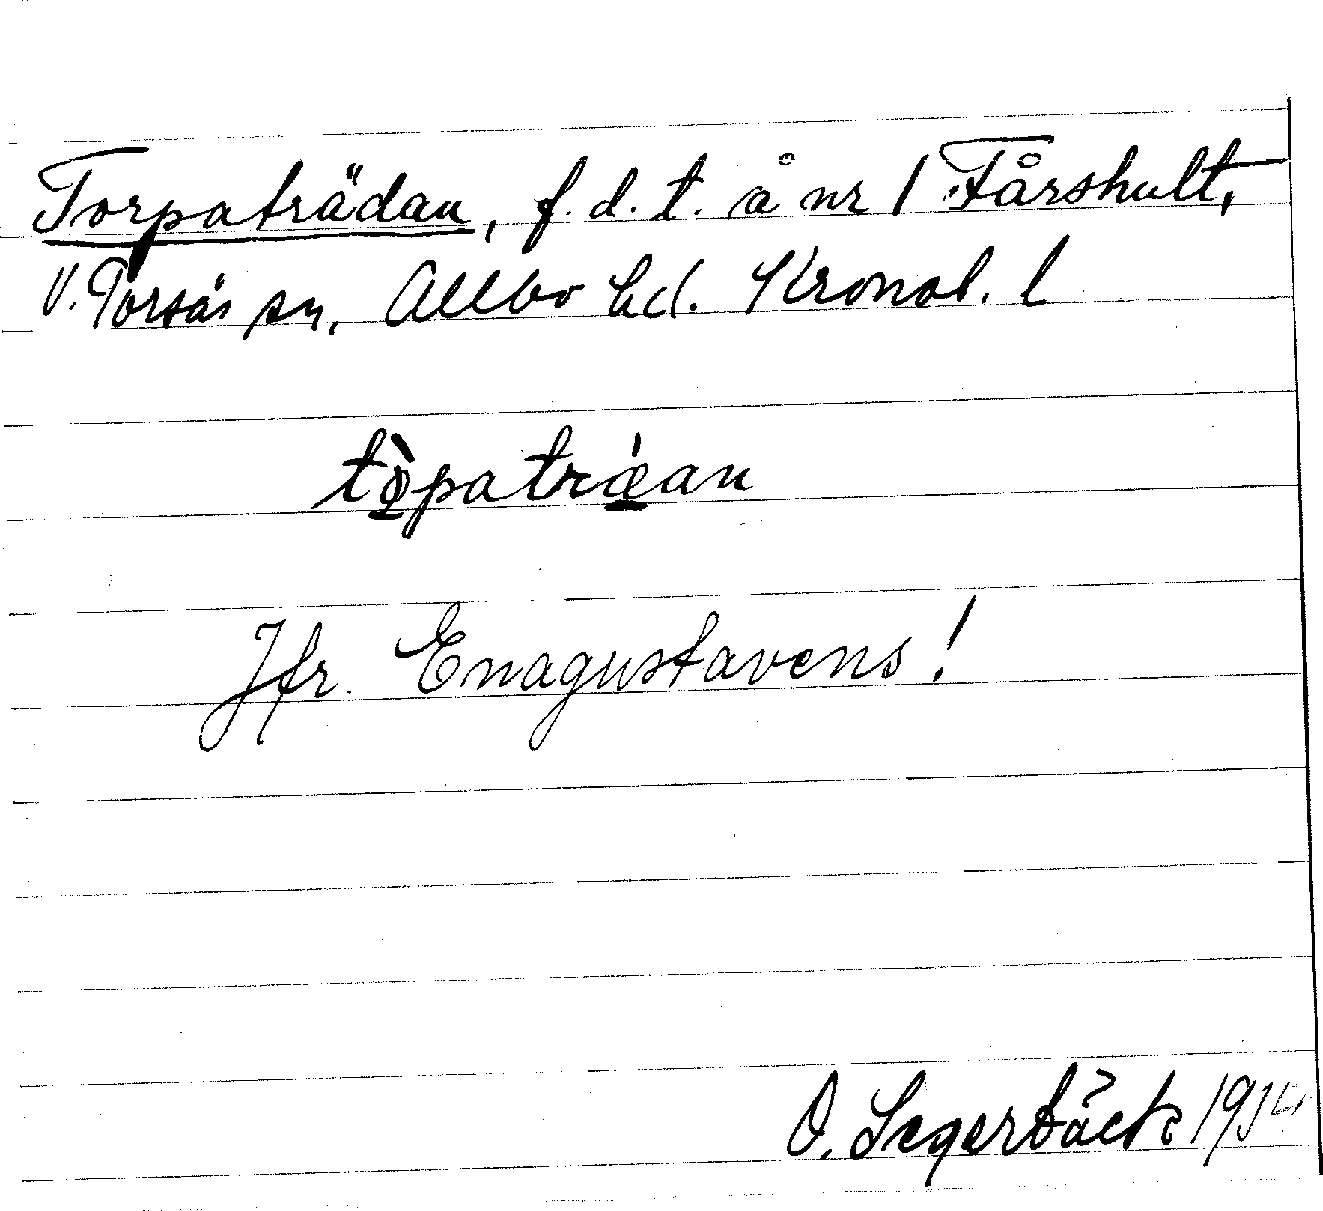 Torpaträdan, f. d. t. å nr 1 Fårshult,
V. Torsås sn, Allbo hd. Kronob. l
tò̱patrǽ̱an
Jfr. Enagustavens!
O. Segerbäck